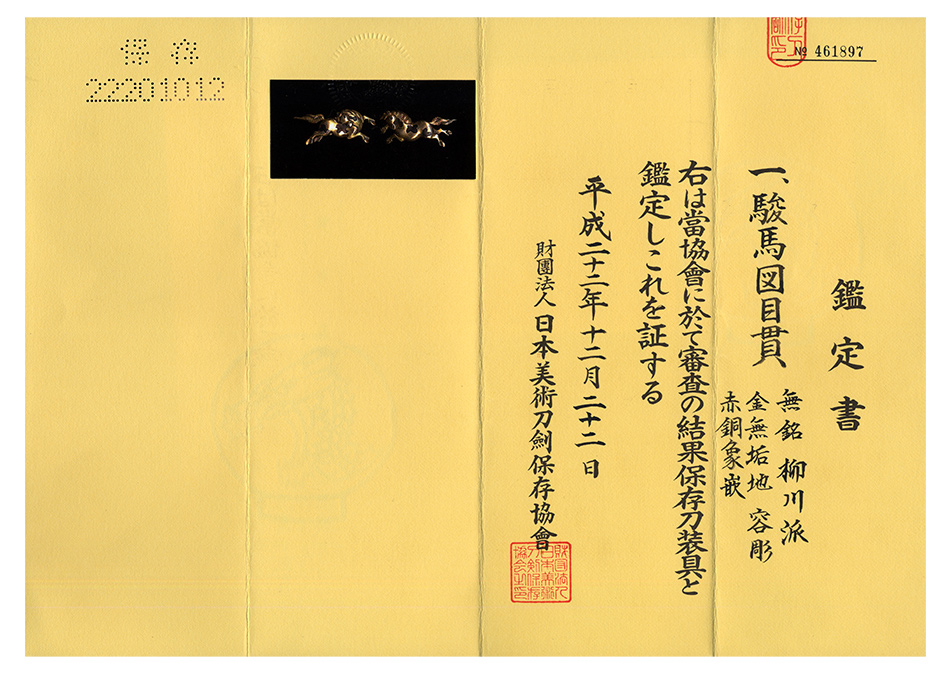 № 461897
鑑定書
一、駿馬図目貫
無銘 柳川派
金無垢地 容彫
赤銅象嵌
右は當協會に於て審査の結果保存刀装具と
鑑定しこれを証する
平成二十二年十二月二十二日
財團法人日本美術刀劍保存協會
保存
22201012